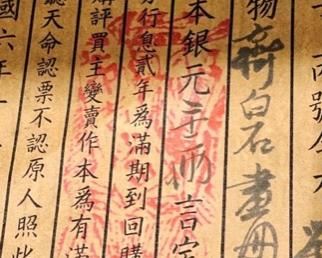 丙號
物齊白石畫冊
本銀元言定
行息貳年爲滿期到回購
評買主變賣作本爲有滿
聽天命認票不認原人照此
國六年